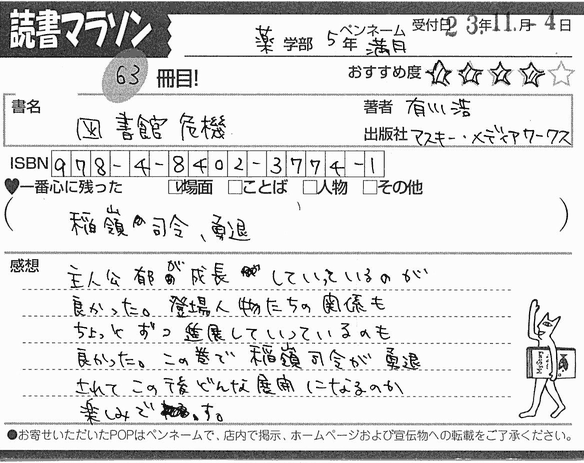 読書マラソン
薬 学部 5年 ペンネーム 満月
受付日 23年11月-4日
63 冊目!
おすすめ度 ★★★★☆
書名 図書館危機
著者 有川浩
出版社 アスキー・メディアワークス
ISBN 978-4-8402-3774-1
♥一番心に残った ☑場面 □ことば □人物 □その他
(稲嶺司令、勇退)
感想
主人公郁が成長していっているのが
良かった。登場人物たちの関係も
ちょっとずつ進展していっているのも
良かった。この巻で稲嶺司令が勇退
されてこの後どんな展開になるのか
楽しみです。
Mystery
●お寄せいただいたPOPはペンネームで、店内で掲示、ホームページおよび宣伝物への転載をご了承ください。